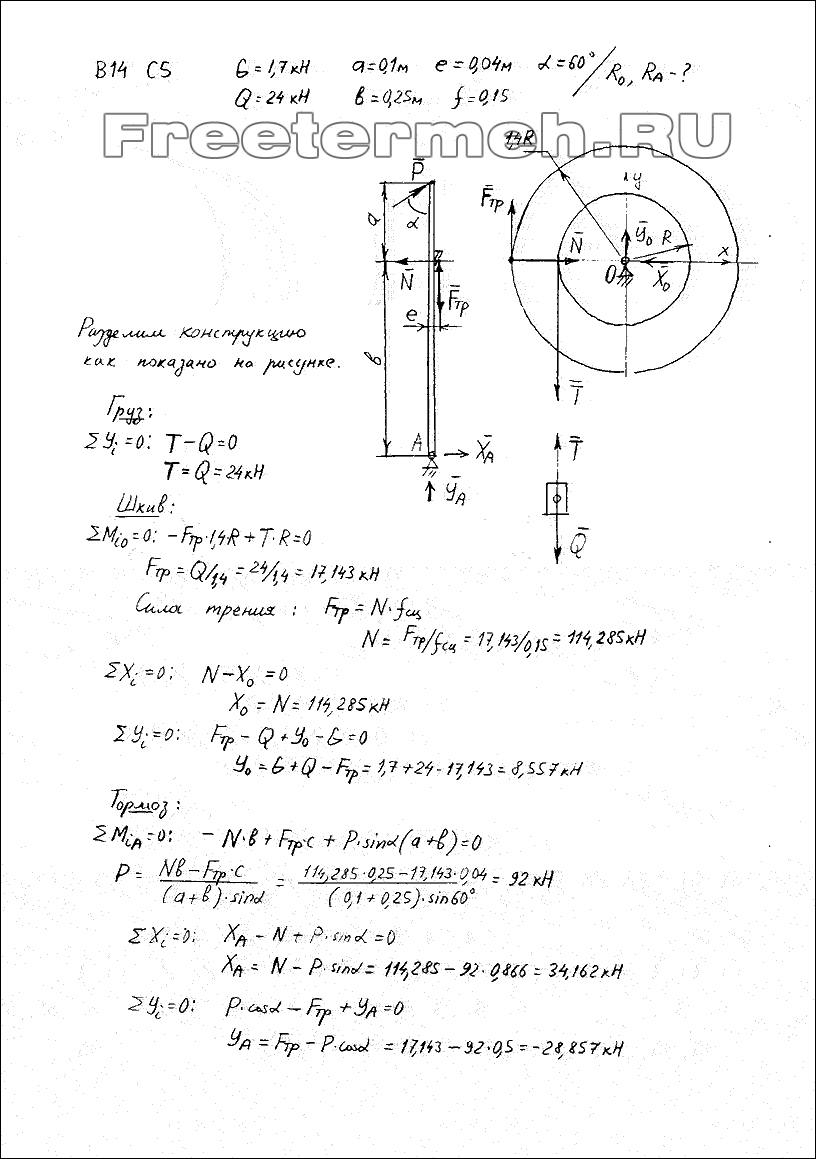 В14 С5 G=1,7кН a=0,1м e=0,04м α=60° / R₀, R_A-?
Q=24 кН в=0,25м f=0,15
Freetermeh.RU
1,4R
P̄
α
a
N̄
F̄тр
e
в
A
X̄_A
Ȳ_A
F̄тр
N̄
y
Ȳ₀
R
x
O
X̄₀
T̄
T̄
Q̄
Разделим конструкцию
как показано на рисунке.
Груз:
ΣYᵢ=0: T-Q=0
T=Q=24кН
Шкив:
ΣMᵢ₀=0: -Fтр·1,4R+T·R=0
Fтр=Q/1,4=24/1,4=17,143 кН
Сила трения: Fтр=N·fсц
N=Fтр/fсц=17,143/0,15=114,285кН
ΣXᵢ=0: N-X₀=0
X₀=N=114,285кН
ΣYᵢ=0: Fтр-Q+Y₀-G=0
Y₀=G+Q-Fтр=1,7+24-17,143=8,557кН
Тормоз:
ΣMᵢA=0: -N·в+Fтр·c+P·sinα(a+в)=0
P=(Nв-Fтр·c)/((a+в)·sinα)=(114,285·0,25-17,143·0,04)/((0,1+0,25)·sin60°)=92кН
ΣXᵢ=0: X_A-N+P·sinα=0
X_A=N-P·sinα=114,285-92·0,866=34,162кН
ΣYᵢ=0: P·cosα-Fтр+Y_A=0
Y_A=Fтр-P·cosα=17,143-92·0,5=-28,857кН